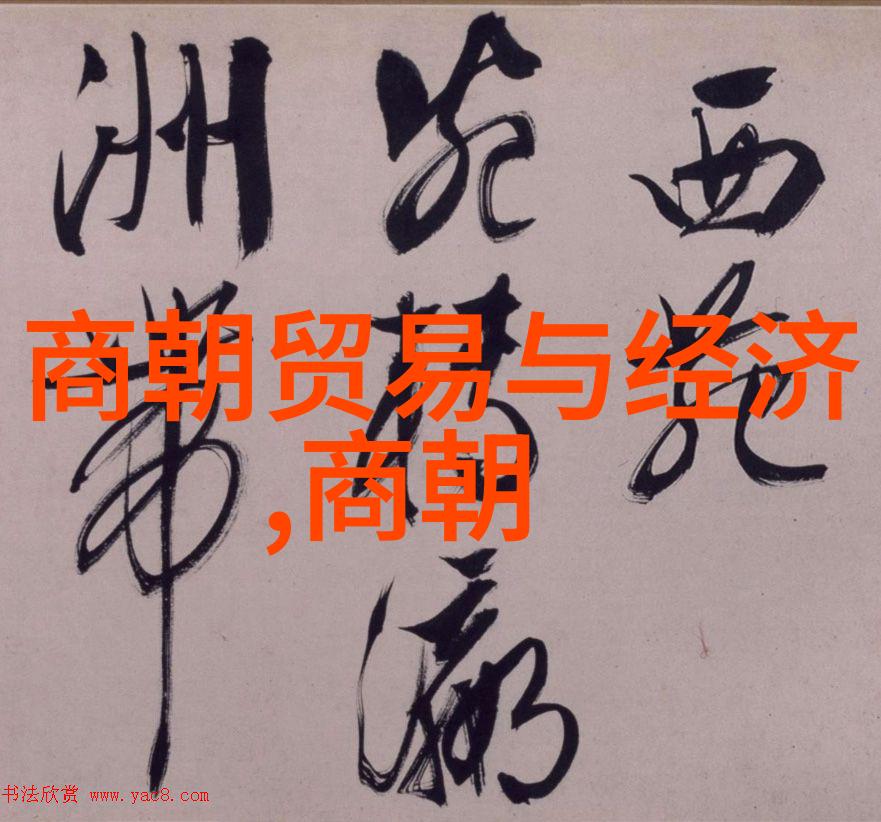 西苑
瀛
洲帶
商朝贸易与经济
,商朝
书法欣赏 www.yac8.com